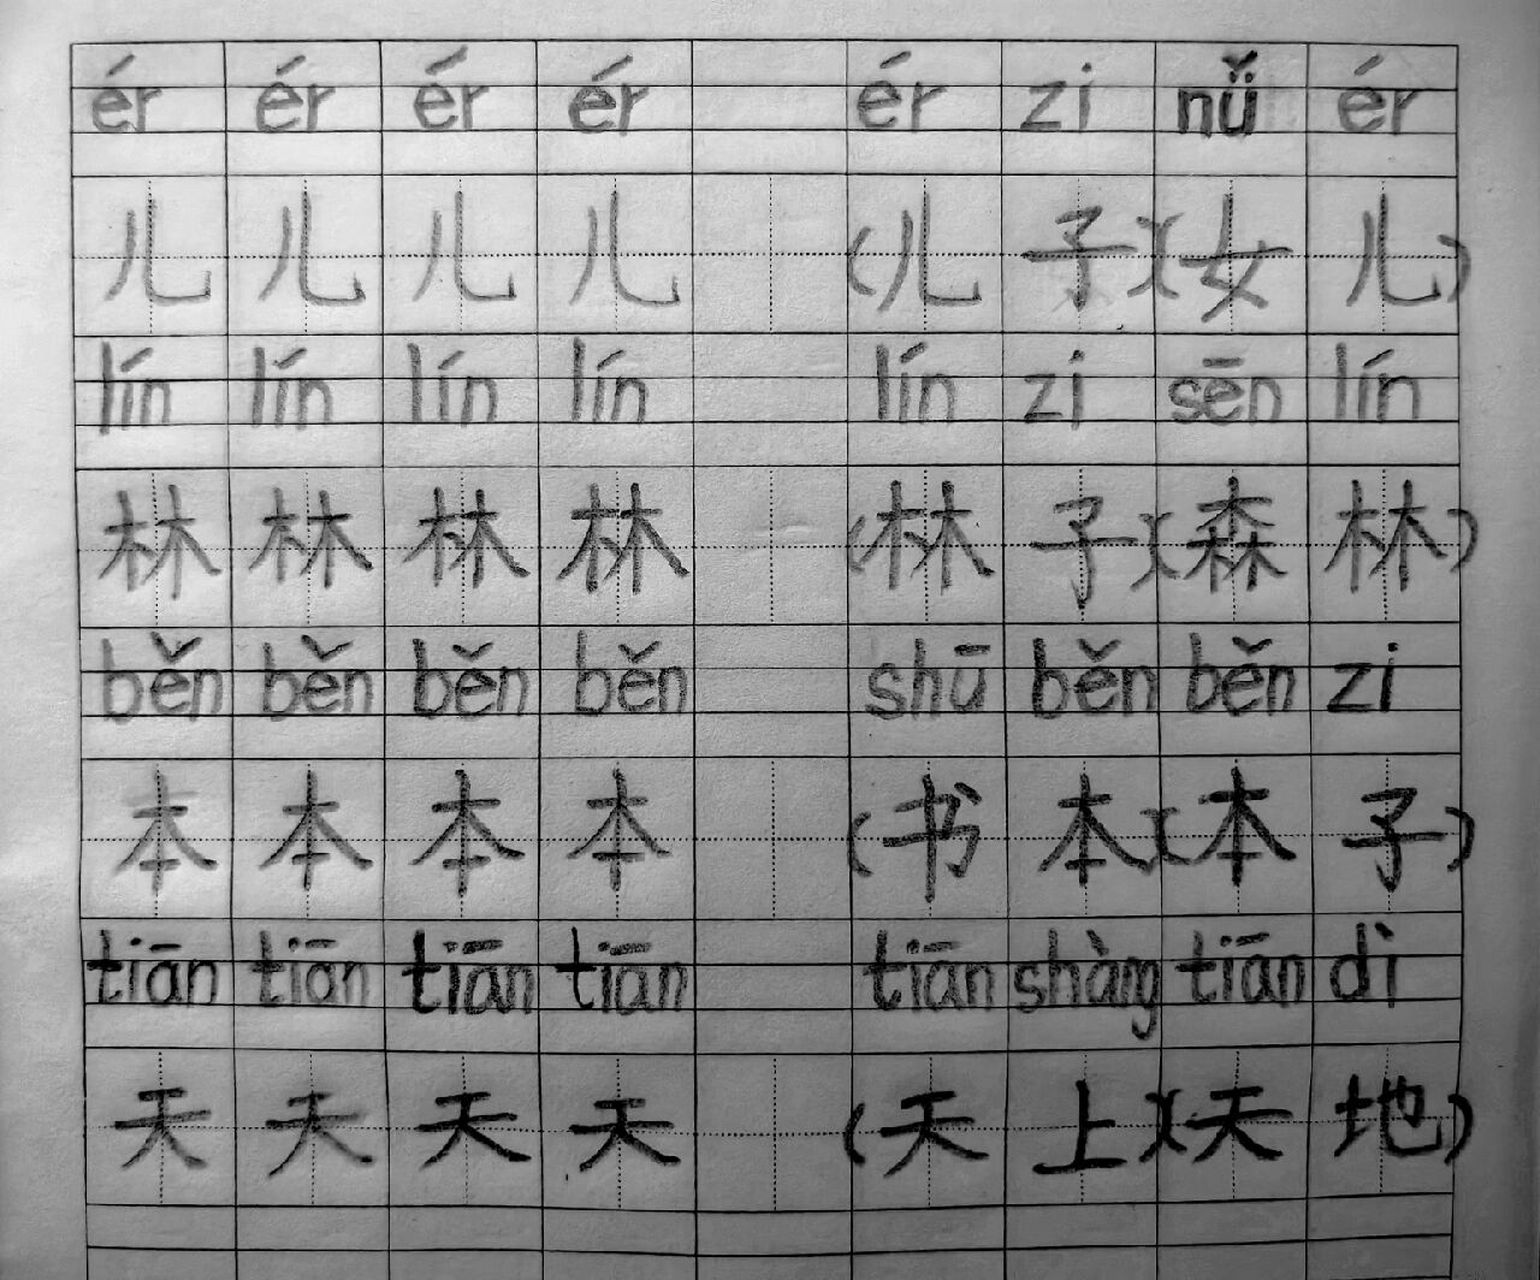 ér ér ér ér ér zi nǚ ér
儿 儿 儿 儿 (儿 子)(女 儿)
lín lín lín lín lín zi sēn lín
林 林 林 林 (林 子)(森 林)
běn běn běn běn shū běn běn zi
本 本 本 本 (书 本)(本 子)
tiān tiān tiān tiān tiān shàng tiān dì
天 天 天 天 (天 上)(天 地)